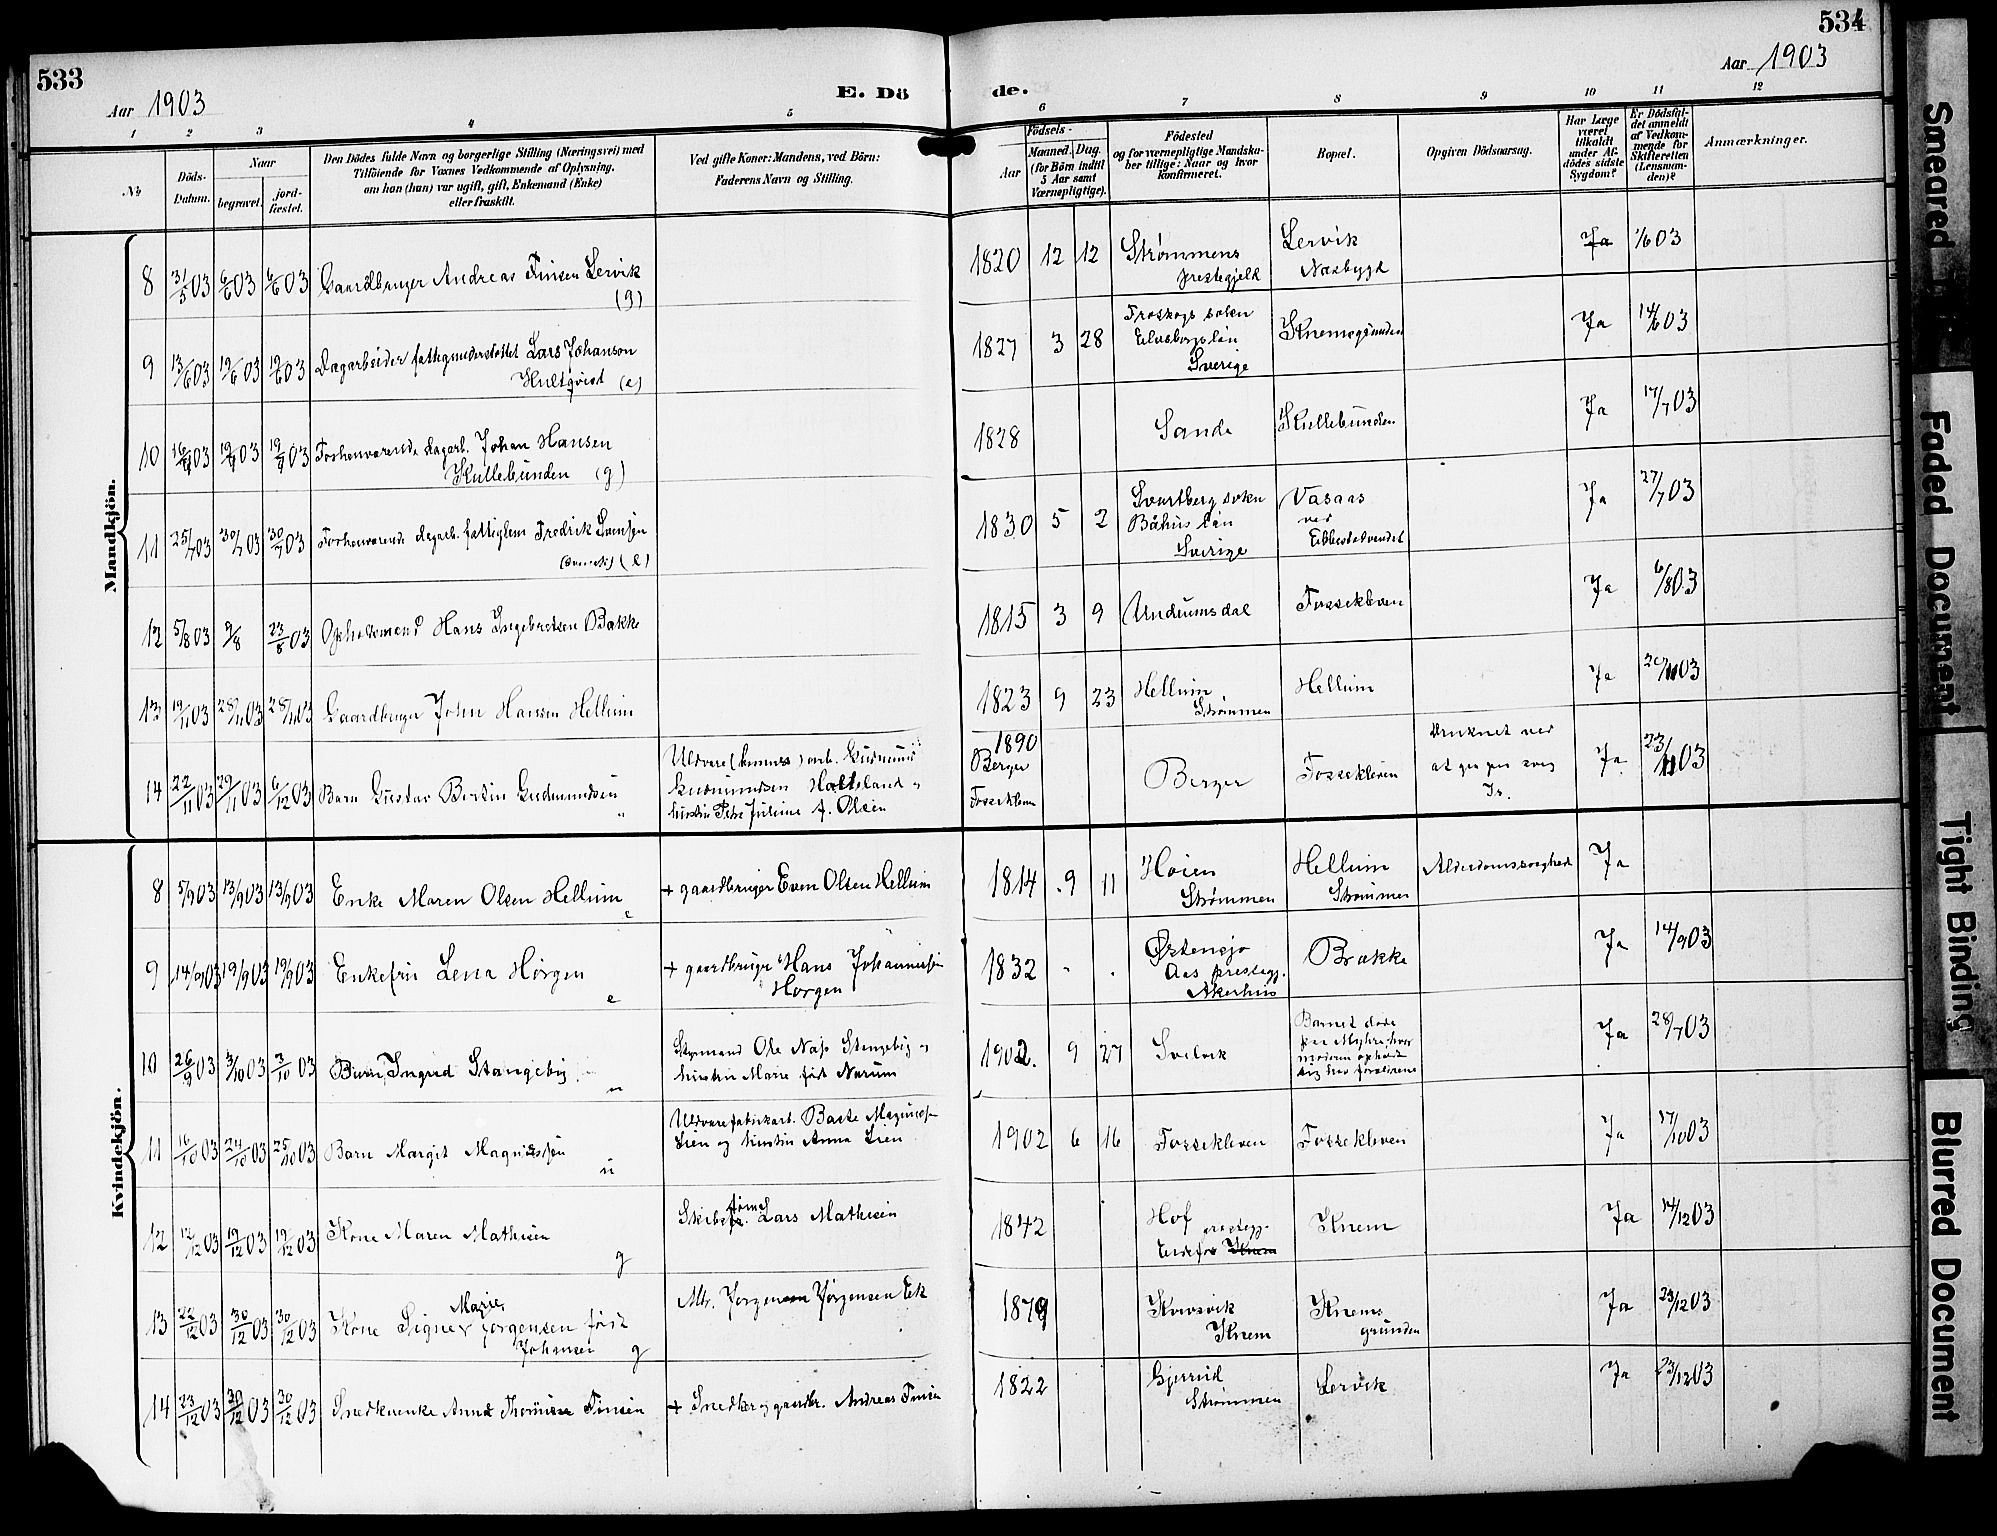 533
Aar 1903
E. Dö
de.
534
Aar 1903
1 2 3 4 5 6 7 8 9 10 11 12
№
Döds-
Datum.
Naar
begravet.
jord-
fæstet.
Den Dödes fulde Navn og borgerlige Stilling (Næringsvei) med
Tilföiende for Voxnes Vedkommende af Oplysning,
om han (hun) var ugift, gift, Enkemand (Enke)
eller fraskilt.
Ved gifte Koner: Mandens, ved Börn:
Faderens Navn og Stilling.
Födsels-
Aar
Maaned. Dag.
(for Börn indtil
5 Aar samt
Værnepligtige).
Födested
og for værnepligtige Mandska-
ber tillige: Naar og hvor
konfirmeret.
Bopæl.
Opgiven Dödsaarsag.
Har Læge
været
tilkaldt
under Af-
dödes sidste
Sygdom?
Er Dödsfal-
det anmeldt
af Vedkom-
mende for
Skifteretten
(Lensman-
den)?
Anmærkninger.
Mandkjön.
8 31/5 03 6/6 03 6/6 03 Gaardbruger Andreas Finsen Lervik
(g)
1820 12 12 Strømmens
prestegjeld
Lervik
Næsbygd
Ja 1/6 03
9 13/6 03 19/6 03 19/6 03 Dagarbeider fattigunderstøttet Lars Johanson
Hultqvist (e)
1827 3 28 Froskogs soken
Elvsborgs län
Sverige
Knemsgrunden
Ja 14/6 03
10 16/7 03 19/7 03 19/7 03 Forhenværende dagarb. Johan Hansen
Kullebunden (g)
1828 Sande Kullebunden Ja 17/7 03
11 25/7 03 30/7 03 30/7 03 Forhenværende dagarb. fattiglem Fredrik Svensen
(svensk) (e)
1830 5 2 Svartberg soken
Båhus län
Sverige
Vasaas
ved
Ebbestadvandet
Ja 27/7 03
12 5/8 03 9/8 23/8 03 Opholdsmand Hans Ingebretsen Bakke
1815 3 9 Undrumsdal Fossekleven Ja 6/8 03
13 19/11 03 28/11 03 28/11 03 Gaardbruger John Hansen Hellum
1823 9 23 Hellum
Strømmen
Hellum Ja 20/11 03
14 22/11 03 29/11 03 6/12 03 Barn Gustav Bertin Gudmundsen
Uldvare arb. Gudmund
Gudmundsen Hotteland
hustru Petra Juliane f. Olsen
1890
Berger
Fossekleven
Berger Fossekleven
Druknet ved
at gaa paa svag
Is.
Ja 23/11 03
Kvindekjön.
8 5/9 03 13/9 03 13/9 03 Enke Maren Olsen Hellum
e
+ gaardbruger Even Olsen Hellum
1814 9 11 Høien
Strømmen
Hellum
Strømmen
Alderdomssvaghed Ja
9 14/9 03 19/9 03 19/9 03 Enkefru Lena Horgen
e
+ gaardbruger Hans Johannessen
Horgen
1832 Østensjø
Aas prestegj.
Akerhus
Brække Ja 14/9 03
10 26/9 03 3/10 03 3/10 03 Barn Ingrid Stangeby
u
Styrmand Ole Stangeby og
hustru Marie født Narum
1902. 9 27 Svelvik
Barnet døde
paa Myhre, hvor
moderen opholdt
sig hos forældrene
Ja 28/7 03
11 16/10 03 24/10 03 25/10 03 Barn Margit Magnussen
u
Uldvarefabrikarb. Magnussen
Lien og hustru Anna Lien
1902 6 16 Fossekleven Fossekleven Ja 17/10 03
12 12/12 03 19/12 03 19/12 03 Kone Maren Mathisen
g
Lars Mathisen
1842 Hof prestegj.
Knem
Knem Ja 14/12 03
13 22/12 03 30/12 03 30/12 03 Kone Signe Marie Jørgensen født
Johansen g
Mtr. Jørgen Jørgensen Eek
1879 Kruosvik
Knem
Knems
grunden
Ja 23/12 03
14 23/12 03 30/12 03 30/12 03 Snedkerenke Anne Thorine Finsen
+ Snedker og gaardbr. Andreas Finsen
1822 Gjerrud
Strømmen
Lervik Ja 23/12 03
Smeared
Faded Document
Tight Binding
Blurred Document